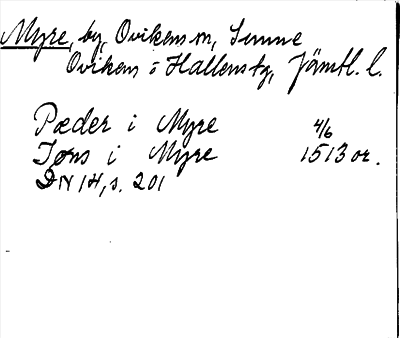 Myre, by, Ovikens sn, Sunne
Ovikens o Hallens tg, Jämtl. l.
Pæder i Myre 4/6
Jøns i Myre 1513 or.
DN 14, s. 201